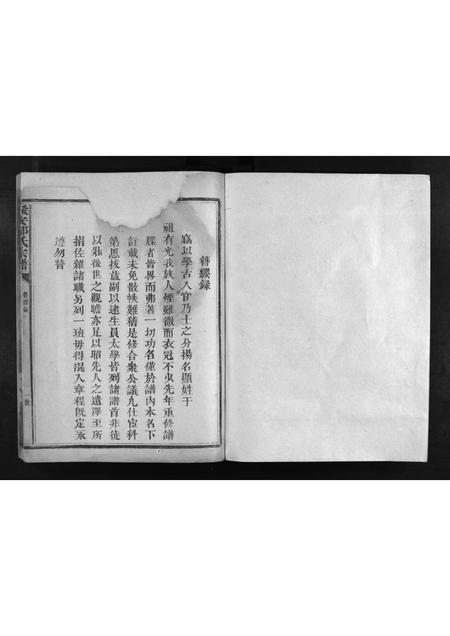 簪纓錄
竊以學古入官乃士之分揚名顯姓于
祖有光我族人煙雖微而衣冠不乏先年重修譜
牒者皆畧而弗著一切功名僅於譜內本名下
註載未免散帙難稽是修合衆公議凡仕宦科
第恩拔歲副以逮生員太學皆列諸譜首非徒
以壯後世之觀瞻亦足以昭先人之遺澤至所
捐佐雜諸職另列一班毋得混入章程旣定永
遵勿替
氏宗譜